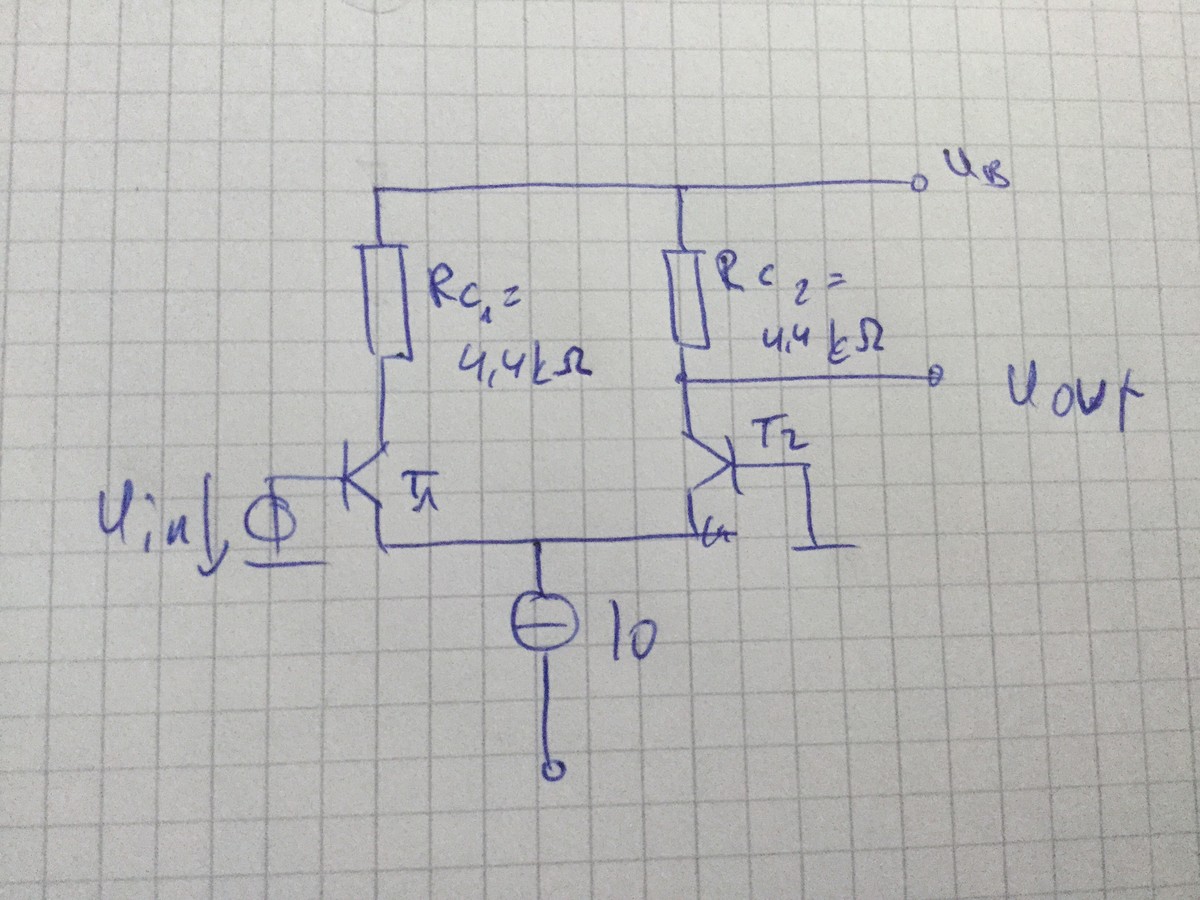 UB
RC1=
4,4kΩ
RC2=
4,4kΩ
Uout
T2
T1
Uin
I0